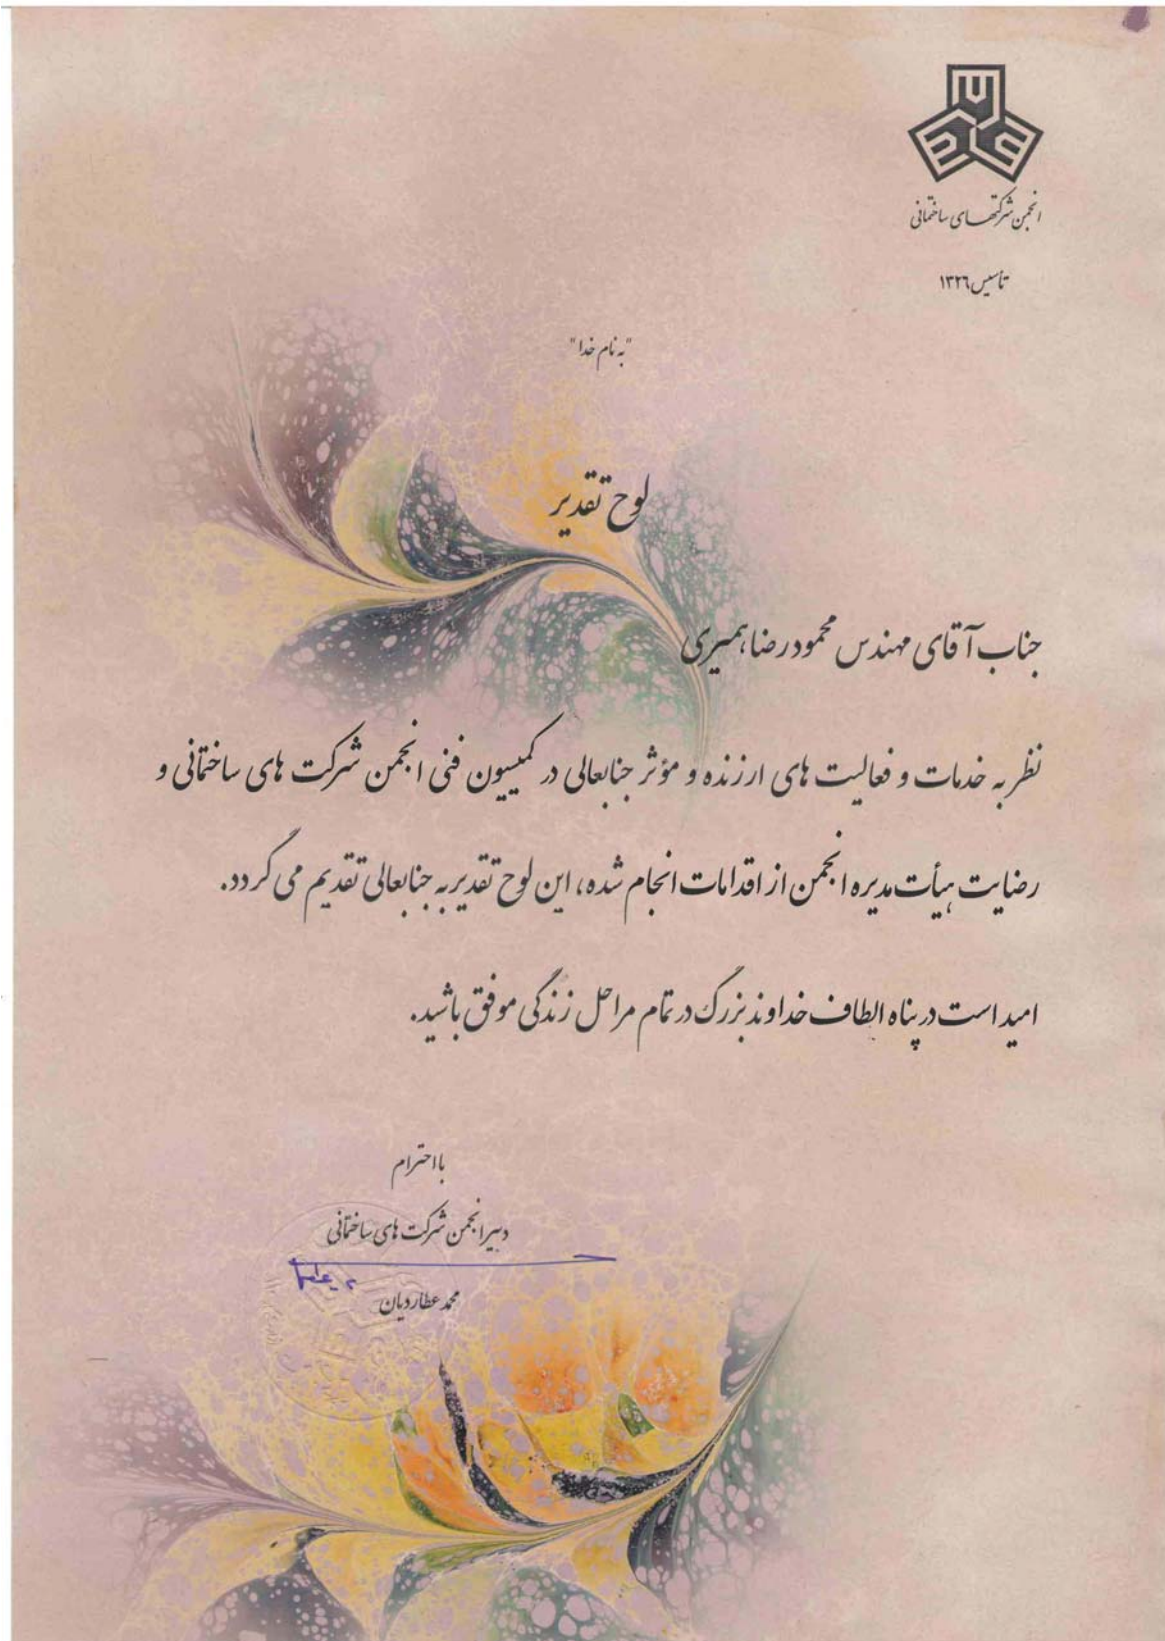 انجمن شرکتهای ساختمانی
تأسیس ۱۳۲۶
"به نام خدا"
لوح تقدیر
جناب آقای مهندس محمود رضا همیری
نظر به خدمات و فعالیت های ارزنده و مؤثر جنابعالی در کمیسیون فنی انجمن شرکت های ساختمانی و
رضایت هیأت مدیره انجمن از اقدامات انجام شده، این لوح تقدیر به جنابعالی تقدیم می گردد.
امید است در پناه الطاف خداوند بزرگ در تمام مراحل زندگی موفق باشید.
با احترام
دبیر انجمن شرکت های ساختمانی
محمد عطاردیان